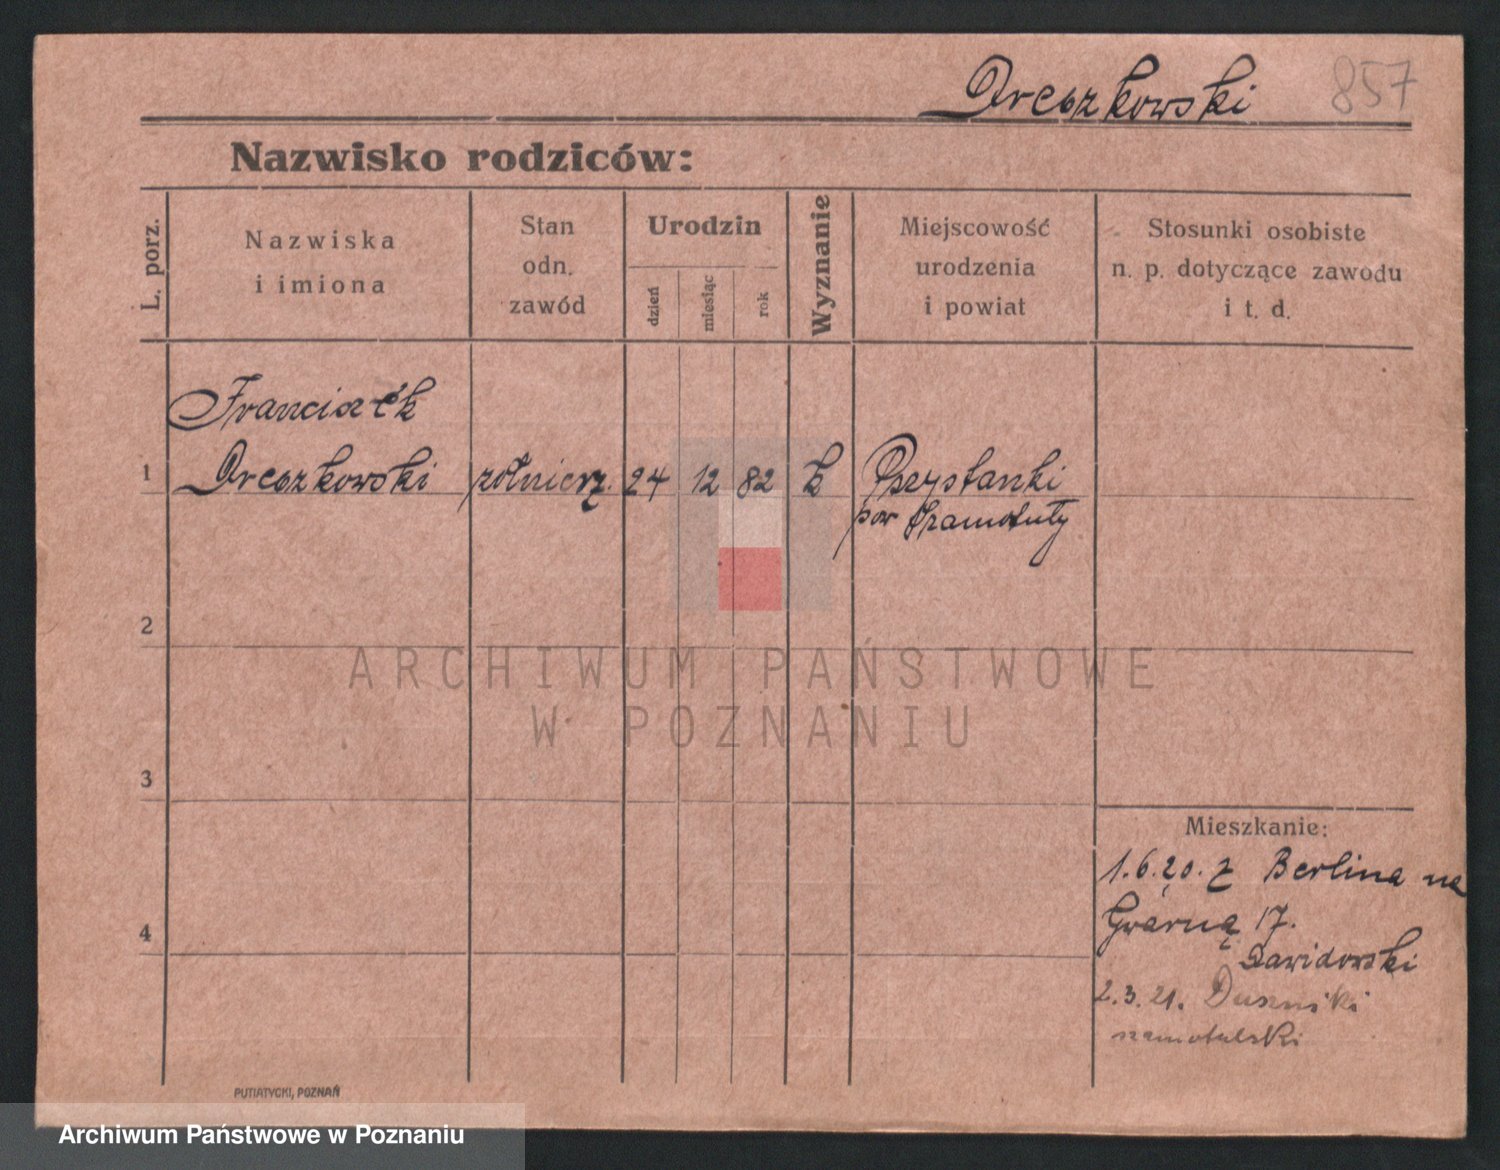 Dreszkowski 857
Nazwisko rodziców:
L. porz.
Nazwiska
i imiona
Stan
odn.
zawód
Urodzin
dzień
miesiąc
rok
Wyznanie
Miejscowość
urodzenia
i powiat
Stosunki osobiste
n. p. dotyczące zawodu
i t. d.
Franciszek
1 Dreszkowski żołnierz. 24 12 82 k Przystanki
pow Szamotuły
2
ARCHIWUM PAŃSTWOWE
W POZNANIU
3
Mieszkanie:
1.6.20. z Berlina na
4
Gwarną 17.
Dawidowski
2.3.21. Duszniki
szamotulski
PUTIATYCKI, POZNAŃ
Archiwum Państwowe w Poznaniu